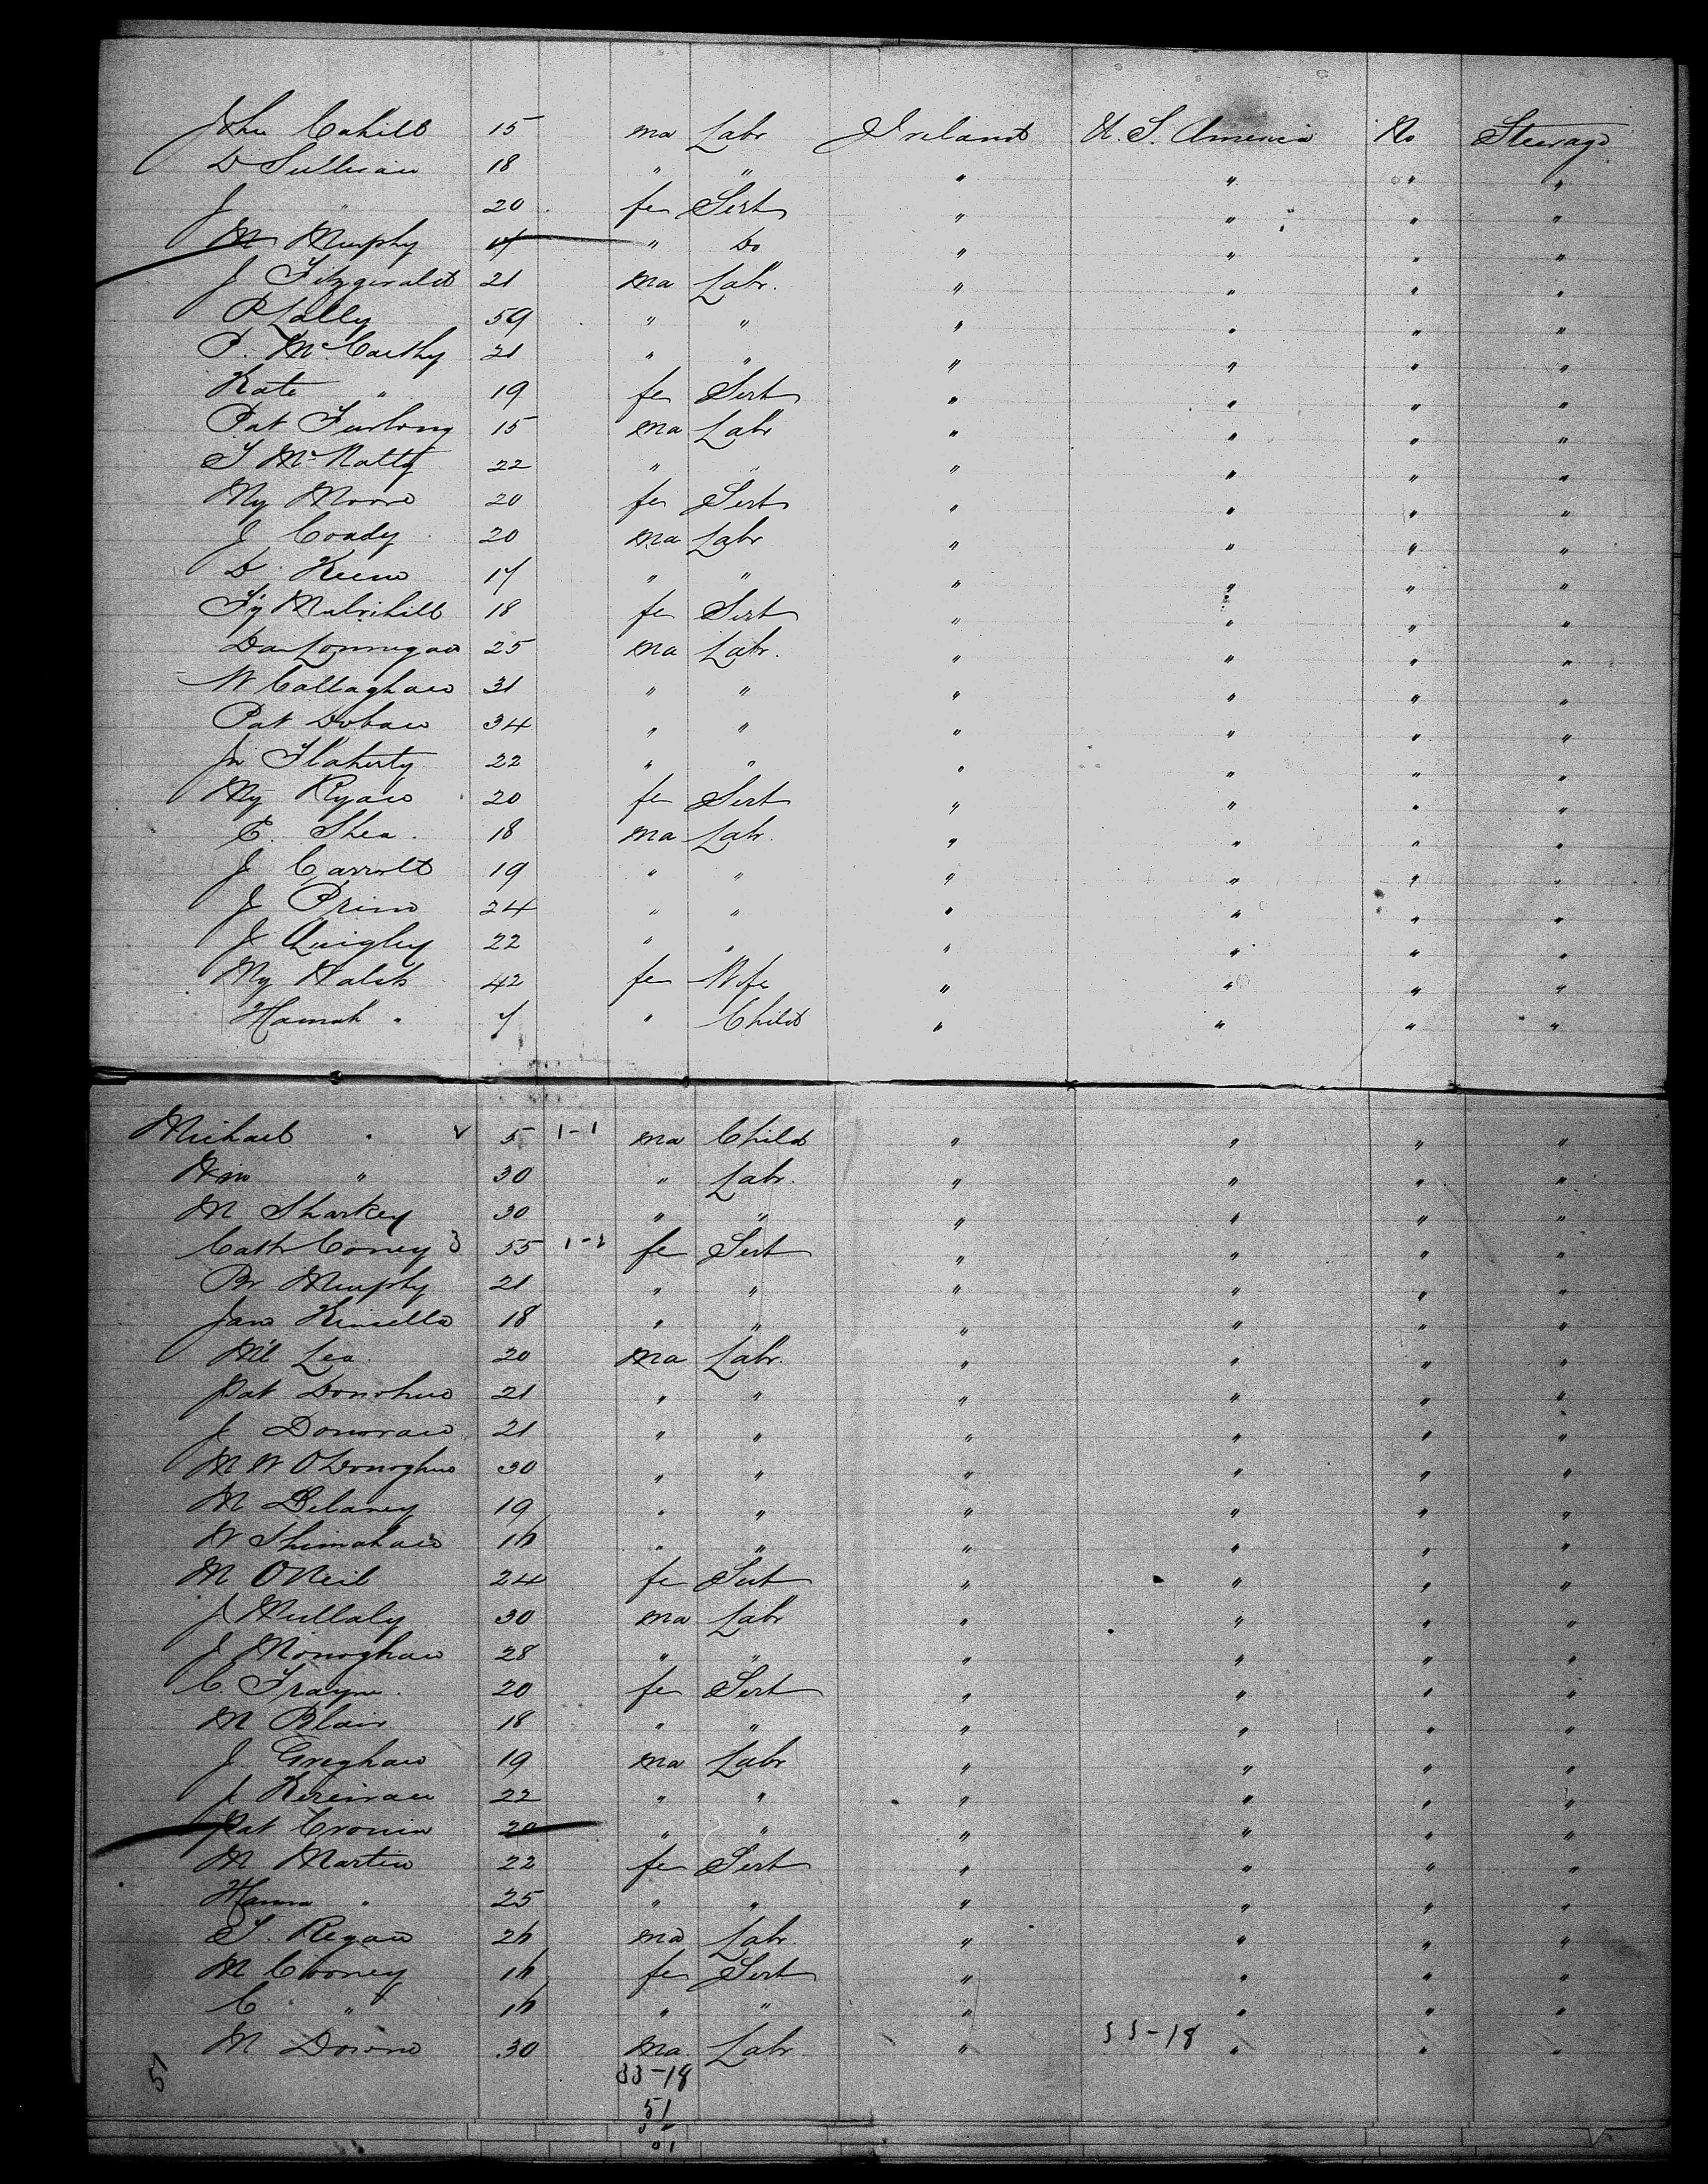 John Cahill 15 ma Labr Ireland U. S. America No Steerage
D Sullivan 18 " " " " " "
J " 20 fe Servt " " " "
M Murphy 17 " Do " " " "
J Fitzgerald 21 ma Labr. " " " "
P Lally 59 " " " " " "
P. McCarthy 21 " " " " " "
Kate " 19 fe Servt " " " "
Pat Furlong 15 ma Labr " " " "
T McNally 22 " " " " " "
My Moore 20 fe Servt " " " "
J Coady 20 ma Labr " " " "
D. Keene 17 " " " " " "
Mulvihill 18 fe Servt " " " "
Dan Lonnegan 25 ma Labr. " " " "
W Callaghan 31 " " " " " "
Pat Dolan 34 " " " " " "
Jn Flaherty 22 " " " " " "
My Ryan 20 fe Servt " " " "
E. Shea. 18 ma Labr. " " " "
J Carroll 19 " " " " " "
J Prim 24 " " " " " "
J Quigley 22 " " " " " "
My Walsh 42 fe Wife " " " "
Hannah " 7 " Child " " " "
Michael " v 5 1-1 ma Child " " " "
Wm " 30 " Labr. " " " "
M Sharkey 30 " " " " " "
Cath Coney 3 55 fe Servt " " " "
Br Murphy 21 " " " " " "
Jane Kinsella 18 " " " " " "
Ml Lea. 20 ma Labr. " " " "
Pat Donohue 21 " " " " " "
J Donovan 21 " " " " " "
M W O'Donoghue 30 " " " " " "
M Delaney 19 " " " " " "
W Shinahan 16 " " " " " "
M O'Neil 24 fe Servt " " " "
J Mullaly 30 ma Labr " " " "
J Monoghan 28 " " " " " "
C. Frayne. 20 fe Servt " " " "
M Blair 18 " " " " " "
J Greghan 19 ma Labr " " " "
J Kerivan 22 " " " " " "
Pat Cronin 20 " " " " " "
M Martin 22 fe Servt " " " "
Hanna " 25 " " " " " "
T. Regan 26 ma Labr. " " " "
M Cooney 16 fe Servt " " " "
C " 16 " " " " " "
33-18
M Downe 30 ma. Labr. " " " "
51 33-18
51